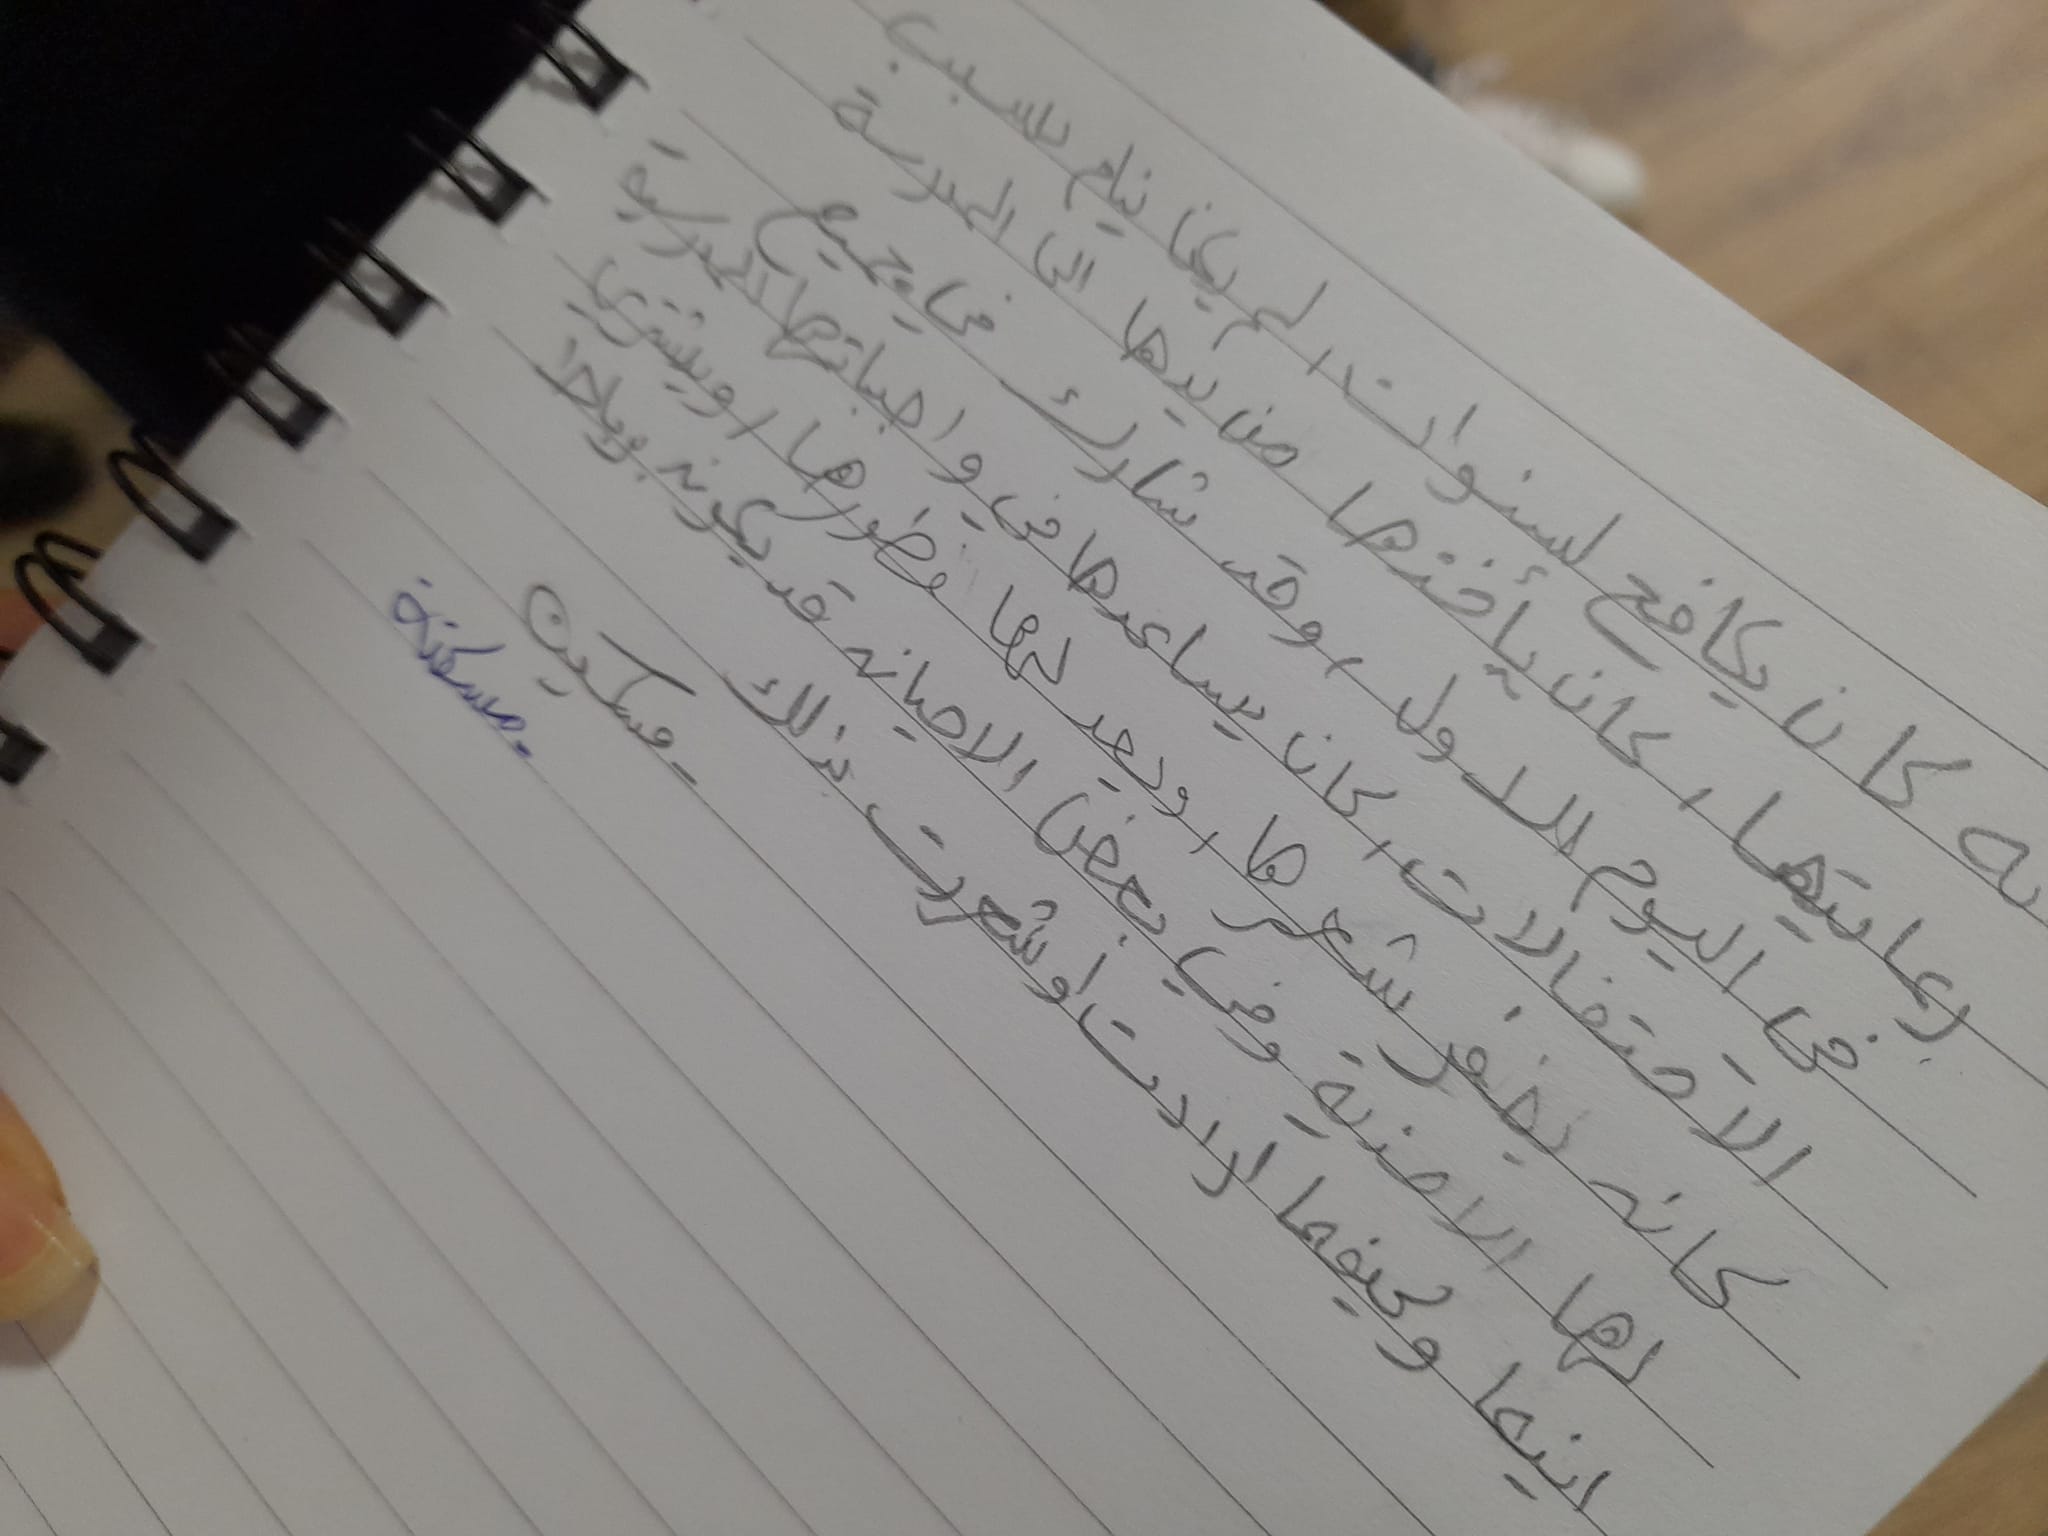 كان يكافح لسنوات، لم يكن ينام بسبب
رعايتها، كان يأخذها من يدها الى المدرسة
في اليوم الاول، وقد شارك في جميع
الاحتفالات، كان يساعدها في واجباتها المدرسية
كان يضفر شعرها، ويعد لها فطورها، ويشتري
لها الاحذية وفي بعض الاحيان قد يكون
اينما وكيفما ارادت أو شعرت بذلك
- مسكين
- مسكنة